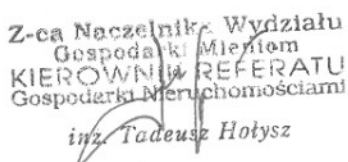 Z-ca Naczelnika Wydziału
Gospodarki Mieniem
KIEROWNIK REFERATU
Gospodarki Nieruchomościami
inż. Tadeusz Hołysz